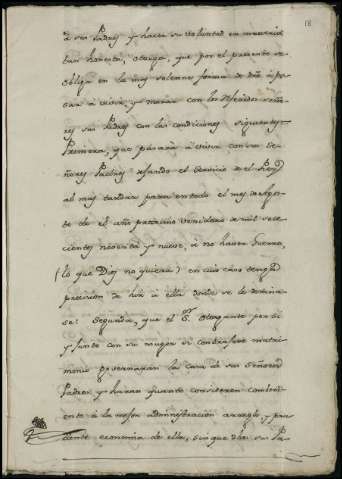 18
à sus Padres y hacer su voluntad en materia
tan honesta, otorga, que por el presente se
obliga en la mas solemne forma de dro à pa
sar à vivir, y morar con los referidos seño
res sus Padres con las condiciones siguientes
Primera, que pasarán à vivir con sus Se
ñores Padres dejando el servicio de el Rey
al mas tardar para en todo el mes de Agos
to de el año proximo venidero de mil sete
cientos noventa y nueve, à no haver Guerra,
(lo que Dios no quiera) en cuio caso tengan
precision de hir à ella donde se le destina
se: Segunda, que el S.r Otorgante por si
y junto con su muger si contrajere matri
monio governarán la casa de sus Señores
Padres y harán quanto consideren condu
ente à la mejor administracion arreglo, y pru
dente economia de ella, sin que dhos sus Pa